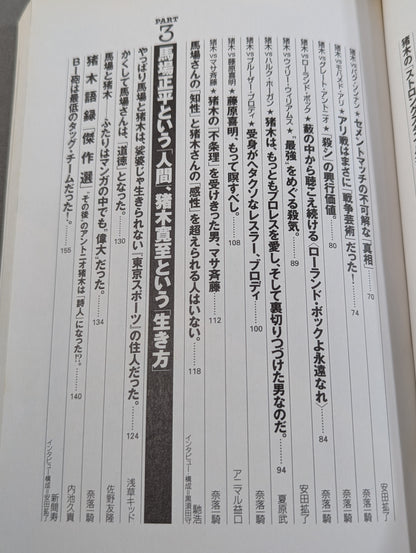 猪木のストロングス
猪木 VS パク・ソンナン ★ セメントマッチの不可解な「真相」 70 安田拡了
猪木 VS モハメド・アリ ★ アリ戦はまさに「戦争芸術」だった! 74 奈落一騎
猪木 VS グレート・アントニオ ★ 「殺シ」の興行価値。 80 奈落一騎
猪木 VS ローランド・ボック ★ 藪の中から聴こえ続ける〈ローランド・ボックよ永遠なれ〉 84 安田拡了
猪木 VS ウィリー・ウィリアムス ★ "最強"をめぐる殺気。 89 夏原武
猪木 VS ハルク・ホーガン ★ 猪木は、もっともプロレスを愛し、そして裏切りつづけた男なのだ。 94 奈落一騎
猪木 VS ブルーザー・ブロディ ★ 受身がヘタクソなレスラー、ブロディ 100 アニマル益口
猪木 VS 藤原喜明 ★ 藤原喜明、もって瞑すべし。 108 奈落一騎
猪木 VS マサ斉藤 ★ 猪木の「不条理」を受けきった男、マサ斉藤 112 奈落一騎
馬場さんの「知性」と猪木さんの「感性」を超えられる人はいない。 118 馳浩 インタビュー・構成=黒須田守
PART 3 馬場正平という「人間」、猪木寛至という「生き方」
やっぱり馬場と猪木は娑婆じゃ生きられない『東京スポーツ』の住人だった。 124 浅草キッド
かくして馬場さんは、「道徳」となった。 130 佐野友隆
馬場と猪木 ふたりはマンガの中でも、「偉大」だった。 134 奈落一騎
猪木語録「傑作選」 その後のアントニオ猪木は「詩人」になった!?。 140 内池久貴
BI砲は最低のタッグ・チームだった!。 155 新間寿 インタビュー・構成=安田拡了